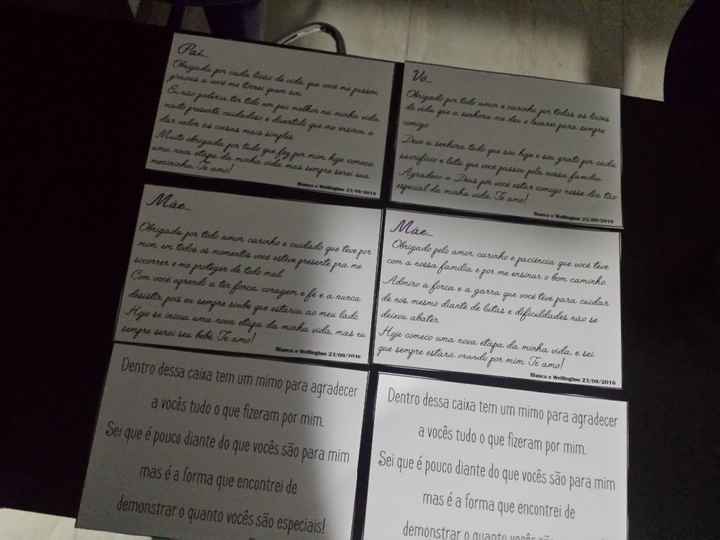 Pai...
Obrigada por cada lição de vida que você me passou,
graças a você me tornei quem sou.
Eu não poderia ter tido um pai melhor na minha vida,
muito presente, cuidadoso e divertido que me ensinou a
dar valor as coisas mais simples.
Muito obrigada por tudo que fez por mim, hoje começo
uma nova etapa da minha vida mas sempre serei sua
menininha. Te amo!
Bianca e Wellington 23/08/2016
Vó...
Obrigado por todo amor e carinho, por todas as lições
de vida que a senhora me deu e levarei para sempre
comigo.
Devo a senhora tudo que sou hoje e sou grato por cada
sacrifício e luta que você passou pela nossa família.
Agradeço a Deus por você estar comigo nesse dia tão
especial da minha vida. Te amo!
Bianca e Wellington 23/08/2016
Mãe...
Obrigada por todo amor, carinho e cuidado que teve por
mim, em todos os momentos você esteve presente pra me
socorrer e me proteger de todo mal.
Com você aprendi a ter força, coragem e fé e a nunca
desistir, pois eu sempre soube que estaria ao meu lado.
Hoje se inicia uma nova etapa da minha vida, mas eu
sempre serei seu bebê. Te amo!
Bianca e Wellington 23/08/2016
Mãe...
Obrigado pelo amor, carinho e paciência que você teve
com a nossa família e por me ensinar o bom caminho.
Admiro a força e a garra que você teve para cuidar
de nós mesmo diante de lutas e dificuldades não se
deixou abater.
Hoje começo uma nova etapa da minha vida, e sei
que sempre estará orando por mim. Te amo!
Bianca e Wellington 23/08/2016
Dentro dessa caixa tem um mimo para agradecer
a vocês tudo o que fizeram por mim.
Sei que é pouco diante do que vocês são para mim
mas é a forma que encontrei de
demonstrar o quanto vocês são especiais!
Dentro dessa caixa tem um mimo para agradecer
a vocês tudo o que fizeram por mim.
Sei que é pouco diante do que vocês são para mim
mas é a forma que encontrei de
demonstrar o quanto vocês são